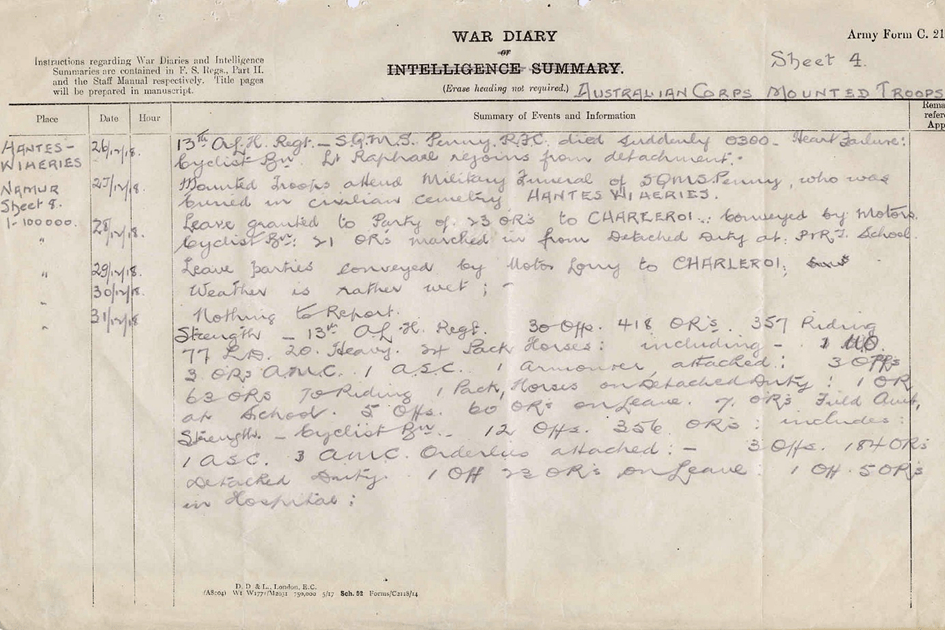 WAR DIARY
OF
INTELLIGENCE SUMMARY.
Army Form C. 21
Instructions regarding War Diaries and Intelligence
Summaries are contained in F. S. Regs., Part II.
and the Staff Manual respectively. Title pages
will be prepared in manuscript.
Sheet 4.
(Erase heading not required.) AUSTRALIAN CORPS MOUNTED TROOPS
Place Date Hour Summary of Events and Information Rema
refere
App
HANTES- 26/12/18. 13th A.L.H. Regt. – S.Q.M.S. Penny. R.F.C. died suddenly 0300. Heart Failure:
WIHERIES Cyclist Bn. Lt Raphael rejoins from detachment.
NAMUR 27/12/18. Mounted Troops attend Military Funeral of SQMS Penny, who was
Sheet 8. buried in civilian cemetery HANTES WIHERIES.
1-100000. 28/12/18. Leave granted to Party of 23 ORs to CHARLEROI.: Conveyed by Motors.
" Cyclist Bn: 21 ORs marched in from Detached Duty at School.
" 29/12/18. Leave Parties conveyed by Motor Lorry to CHARLEROI;
" 30/12/18. Weather is rather wet; -
" 31/12/18 Nothing to Report.
Strength – 13th A.L.H. Regt. 30 Offs. 418 ORs. 357 Riding
77 L.D. 20. Heavy. 24 Pack Horses: including – 1 M.O.
3 ORs A.M.C. 1 A.S.C. 1 Armourer, attached: 3 Offs
63 ORs 70 Riding 1 Pack, Horses on Detached Duty: 1 OR
at School. 5 Offs. 60 ORs on Leave. 7. ORs Field Amb,
Strength. – Cyclist Bn. – 12 Offs. 356 ORs: includes:
1 ASC. 3 A.M.C. Orderlies attached: – 3 Offs. 184 ORs
Detached Duty. 1 Off 23 ORs on Leave: 1 Off 5 ORs
in Hospital;
D. D & L., London, E.C.
(A8004) Wt W1771/M2031 750,000 5/17 Sch. 52 Forms/C2118/14